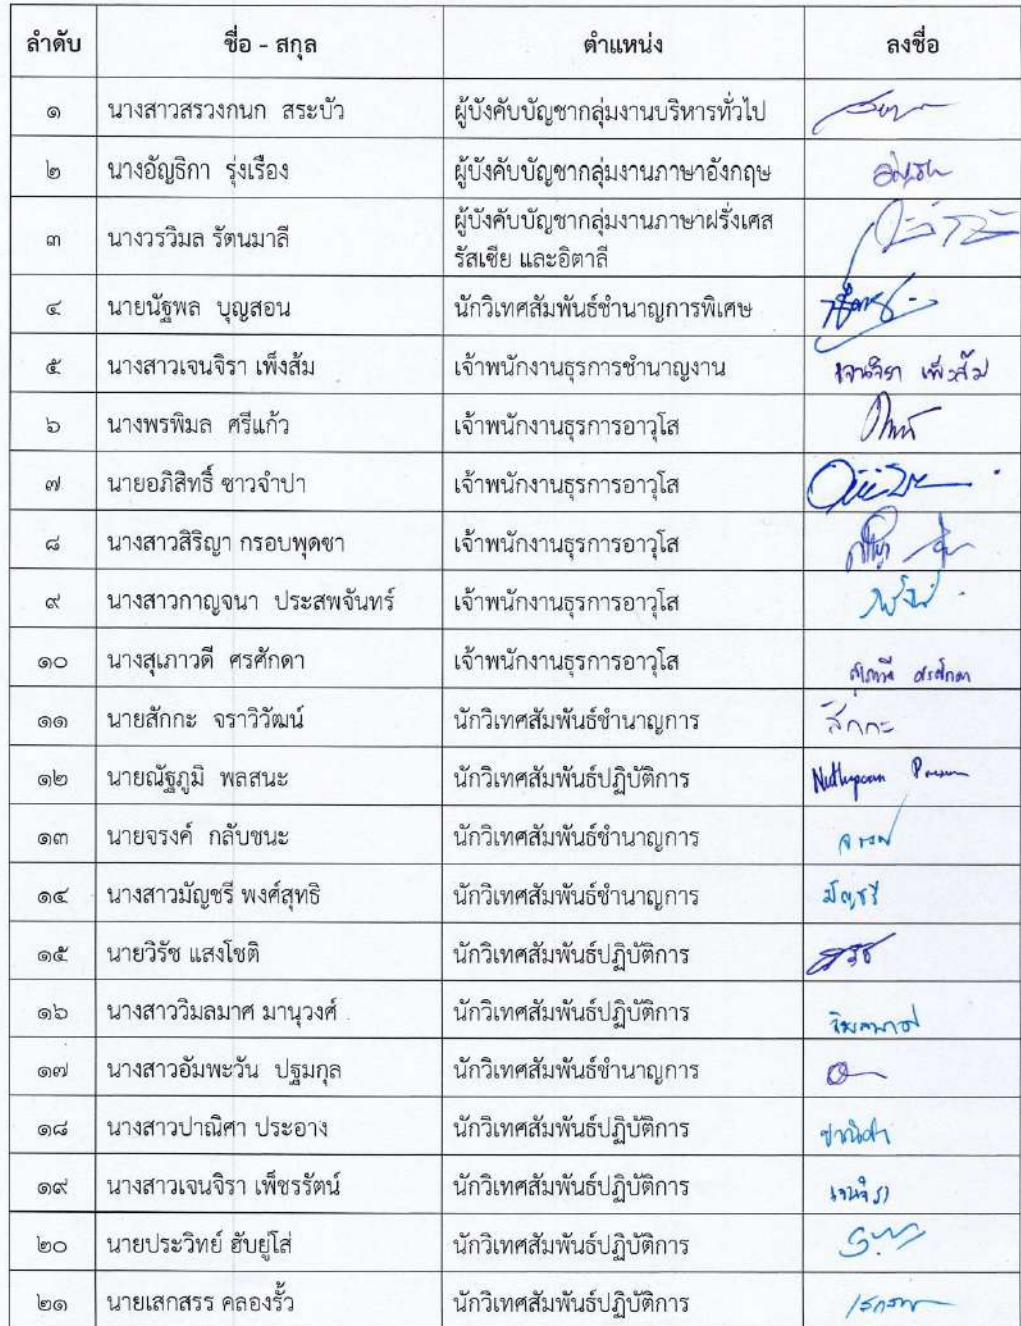 ลำดับ ชื่อ - สกุล ตำแหน่ง ลงชื่อ
๑ นางสาวสรวงกนก สระบัว ผู้บังคับบัญชากลุ่มงานบริหารทั่วไป
๒ นางอัญธิกา รุ่งเรือง ผู้บังคับบัญชากลุ่มงานภาษาอังกฤษ
๓ นางวรวิมล รัตนมาลี ผู้บังคับบัญชากลุ่มงานภาษาฝรั่งเศส
รัสเซีย และอิตาลี
๔ นายนัฐพล บุญสอน นักวิเทศสัมพันธ์ชำนาญการพิเศษ
๕ นางสาวเจนจิรา เพ็งส้ม เจ้าพนักงานธุรการชำนาญงาน เจนจิรา เพ็งส้ม
๖ นางพรพิมล ศรีแก้ว เจ้าพนักงานธุรการอาวุโส
๗ นายอภิสิทธิ์ ซาวจำปา เจ้าพนักงานธุรการอาวุโส
๘ นางสาวสิริญา กรอบพุดซา เจ้าพนักงานธุรการอาวุโส
๙ นางสาวกาญจนา ประสพจันทร์ เจ้าพนักงานธุรการอาวุโส
๑๐ นางสุเภาวดี ศรศักดา เจ้าพนักงานธุรการอาวุโส สุเภาวดี ศรศักดา
๑๑ นายสักกะ จราวิวัฒน์ นักวิเทศสัมพันธ์ชำนาญการ สักกะ
๑๒ นายณัฐภูมิ พลสนะ นักวิเทศสัมพันธ์ปฏิบัติการ
๑๓ นายจรงค์ กลับชนะ นักวิเทศสัมพันธ์ชำนาญการ
๑๔ นางสาวมัญชรี พงศ์สุทธิ นักวิเทศสัมพันธ์ชำนาญการ มัญชรี
๑๕ นายวิรัช แสงโชติ นักวิเทศสัมพันธ์ปฏิบัติการ
๑๖ นางสาววิมลมาศ มานุวงศ์ นักวิเทศสัมพันธ์ปฏิบัติการ วิมลมาศ
๑๗ นางสาวอัมพะวัน ปฐมกุล นักวิเทศสัมพันธ์ชำนาญการ
๑๘ นางสาวปาณิศา ประอาง นักวิเทศสัมพันธ์ปฏิบัติการ ปาณิศา
๑๙ นางสาวเจนจิรา เพ็ชรรัตน์ นักวิเทศสัมพันธ์ปฏิบัติการ เจนจิรา
๒๐ นายประวิทย์ ฮับยู่โส่ นักวิเทศสัมพันธ์ปฏิบัติการ
๒๑ นายเสกสรร คลองรั้ว นักวิเทศสัมพันธ์ปฏิบัติการ